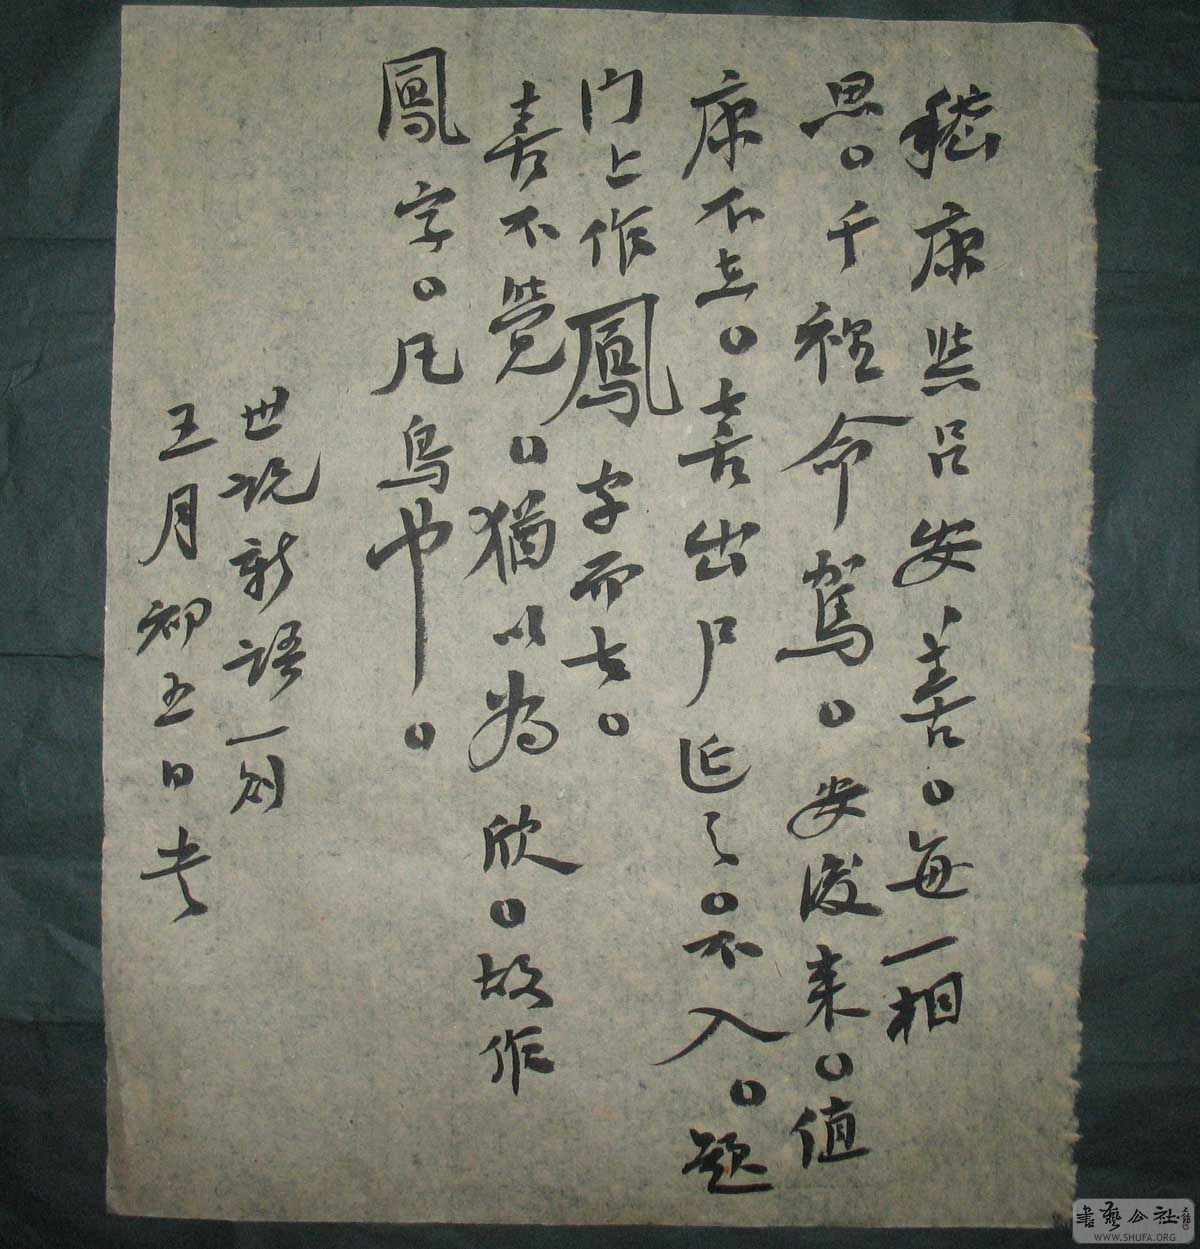 嵇康與呂安善。每一相
思。千裡命駕。安後來。值
康不在。喜出戶延之。不入。題
门上作鳳字而去。
喜不覺。猶以為欣。故作
鳳字。凡鳥也。
世说新語一則
五月初五日
書藝公社
WWW.SHUFA.ORG